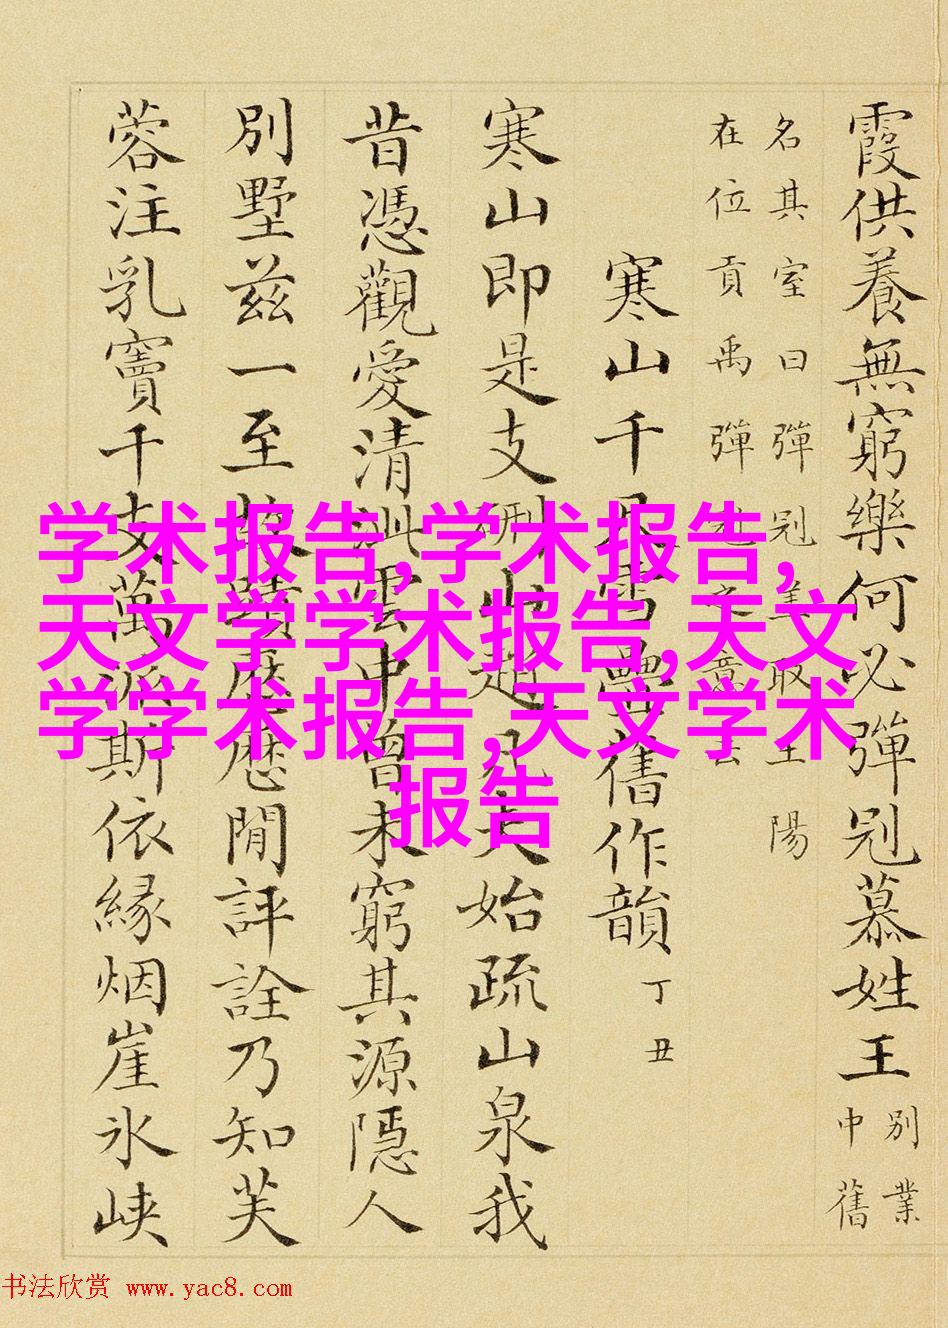 霞供養無窮樂何必彈冠慕姓王
別業
中舊
名其室曰彈冠蓋取王陽
在位貢禹彈冠之意云
寒山千尺雪疊舊作韻 丁丑
寒山即是支硎山趙凡夫始疏山泉我
昔憑觀愛清泚雲中曾未窮其源隱人
別墅茲一至按蹟厯厯閒評詮乃知芙
蓉注乳竇千支萬派斯依緣烟崖氷峽
学术报告,学术报告,
天文学学术报告,天文
学学术报告,天文学术
报告
书法欣赏 www.yac8.com